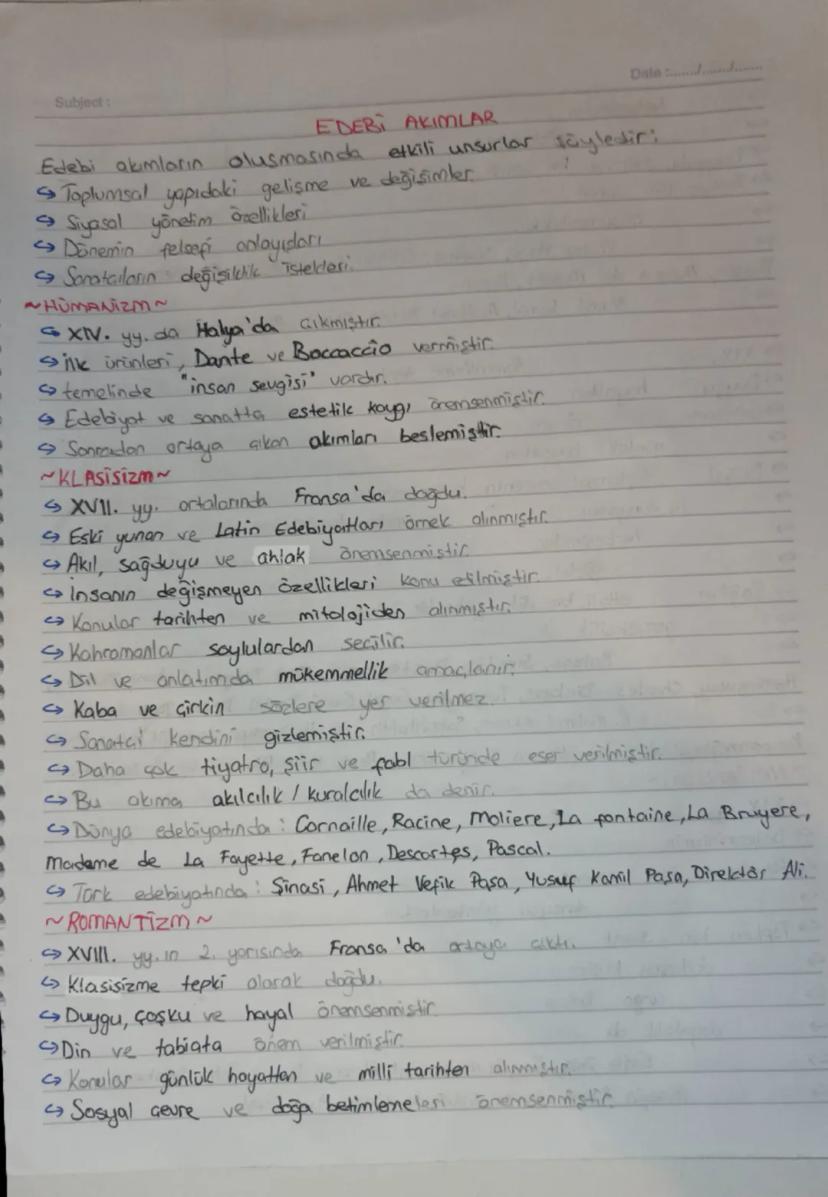 Date :....../....../......
Subject :
EDEBİ AKIMLAR
Edebi akımların oluşmasında etkili unsurlar şöyledir:
↪ Toplumsal yapıdaki gelişme ve değişimler
↪ Siyasal yönetim özellikleri
↪ Dönemin felsefi anlayışları
↪ Sanatçıların değişiklik istekleri.
~HÜMANİZM~
↪ XIV. yy. da İtalya'da çıkmıştır.
↪ İlk ürünleri, Dante ve Boccaccio vermiştir.
↪ temelinde "insan sevgisi" vardır.
↪ Edebiyat ve sanatta estetik kaygı önemsenmiştir.
↪ Sonradan ortaya çıkan akımları beslemiştir.
~KLASİSİZM~
↪ XVII. yy. ortalarında Fransa'da doğdu.
↪ Eski yunan ve Latin Edebiyatları örnek alınmıştır.
↪ Akıl, sağduyu ve ahlak önemsenmiştir.
↪ İnsanın değişmeyen özellikleri konu edilmiştir.
↪ Konular tarihten ve mitolojiden alınmıştır.
↪ Kahramanlar soylulardan seçilir.
↪ Dil ve anlatımda mükemmellik amaçlanır.
↪ Kaba ve çirkin sözlere yer verilmez.
↪ Sanatçı kendini gizlemiştir.
↪ Daha çok tiyatro, şiir ve fabl türünde eser verilmiştir.
↪ Bu akıma akılcılık / kuralcılık da denir.
↪ Dünya edebiyatında : Cornaille, Racine, Moliere, La fontaine, La Bruyere,
Madame de La Fayette, Fanelon, Descartes, Pascal.
↪ Türk edebiyatında : Şinasi, Ahmet Vefik Paşa, Yusuf Kamil Paşa, Direktör Ali.
~ROMANTİZM~
↪ XVIII. yy.ın 2. yarısında Fransa'da ortaya çıktı.
↪ Klasisizme tepki olarak doğdu.
↪ Duygu, çoşku ve hayal önemsenmiştir.
↪ Din ve tabiata önem verilmiştir.
↪ Konular günlük hayattan ve milli tarihten alınmıştır.
↪ Sosyal çevre ve doğa betimlemeleri önemsenmiştir.